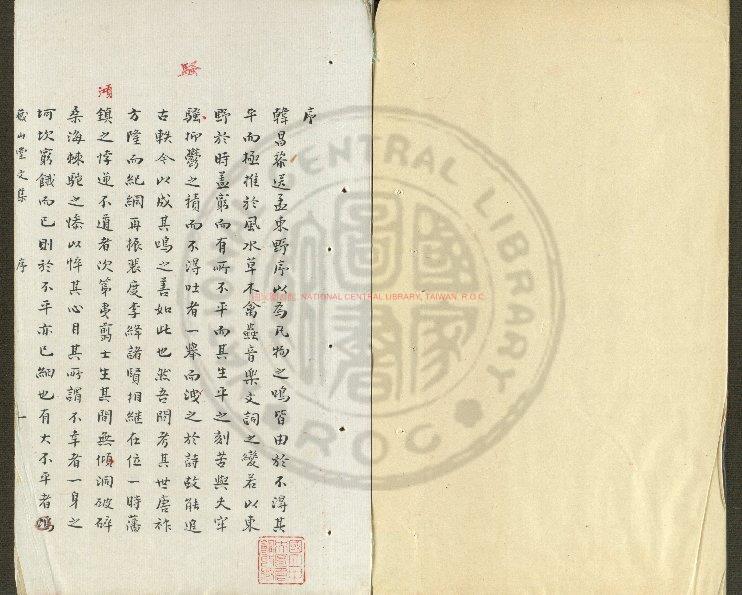 序
韓昌黎送孟東野序以為凡物之鳴皆由於不得其
平而極推於風水草木禽蟲音樂文詞之變若以東
野於時蓋窮而有所不平而其生平之刻苦與夫牢
騷抑鬱之積而不得吐者一舉而洩之於詩故能追
古軼今以成其鳴之善如此也然吾間考其世唐祚
方隆而紀綱再振裴度李絳諸賢相繼在位一時藩
鎮之悖逆不道者次第夷翦士生其間無傾洞破碎
桑海棘駝之慘以怵其心目其所謂不幸者一身之
坷坎窮餓而已則於不平亦已細也有大不平者鳴
騷
澒
山堂文集 序 一
國家圖書館 NATIONAL CENTRAL LIBRARY, TAIWAN R.O.C.
NATIONAL CENTRAL LIBRARY
R.O.C.